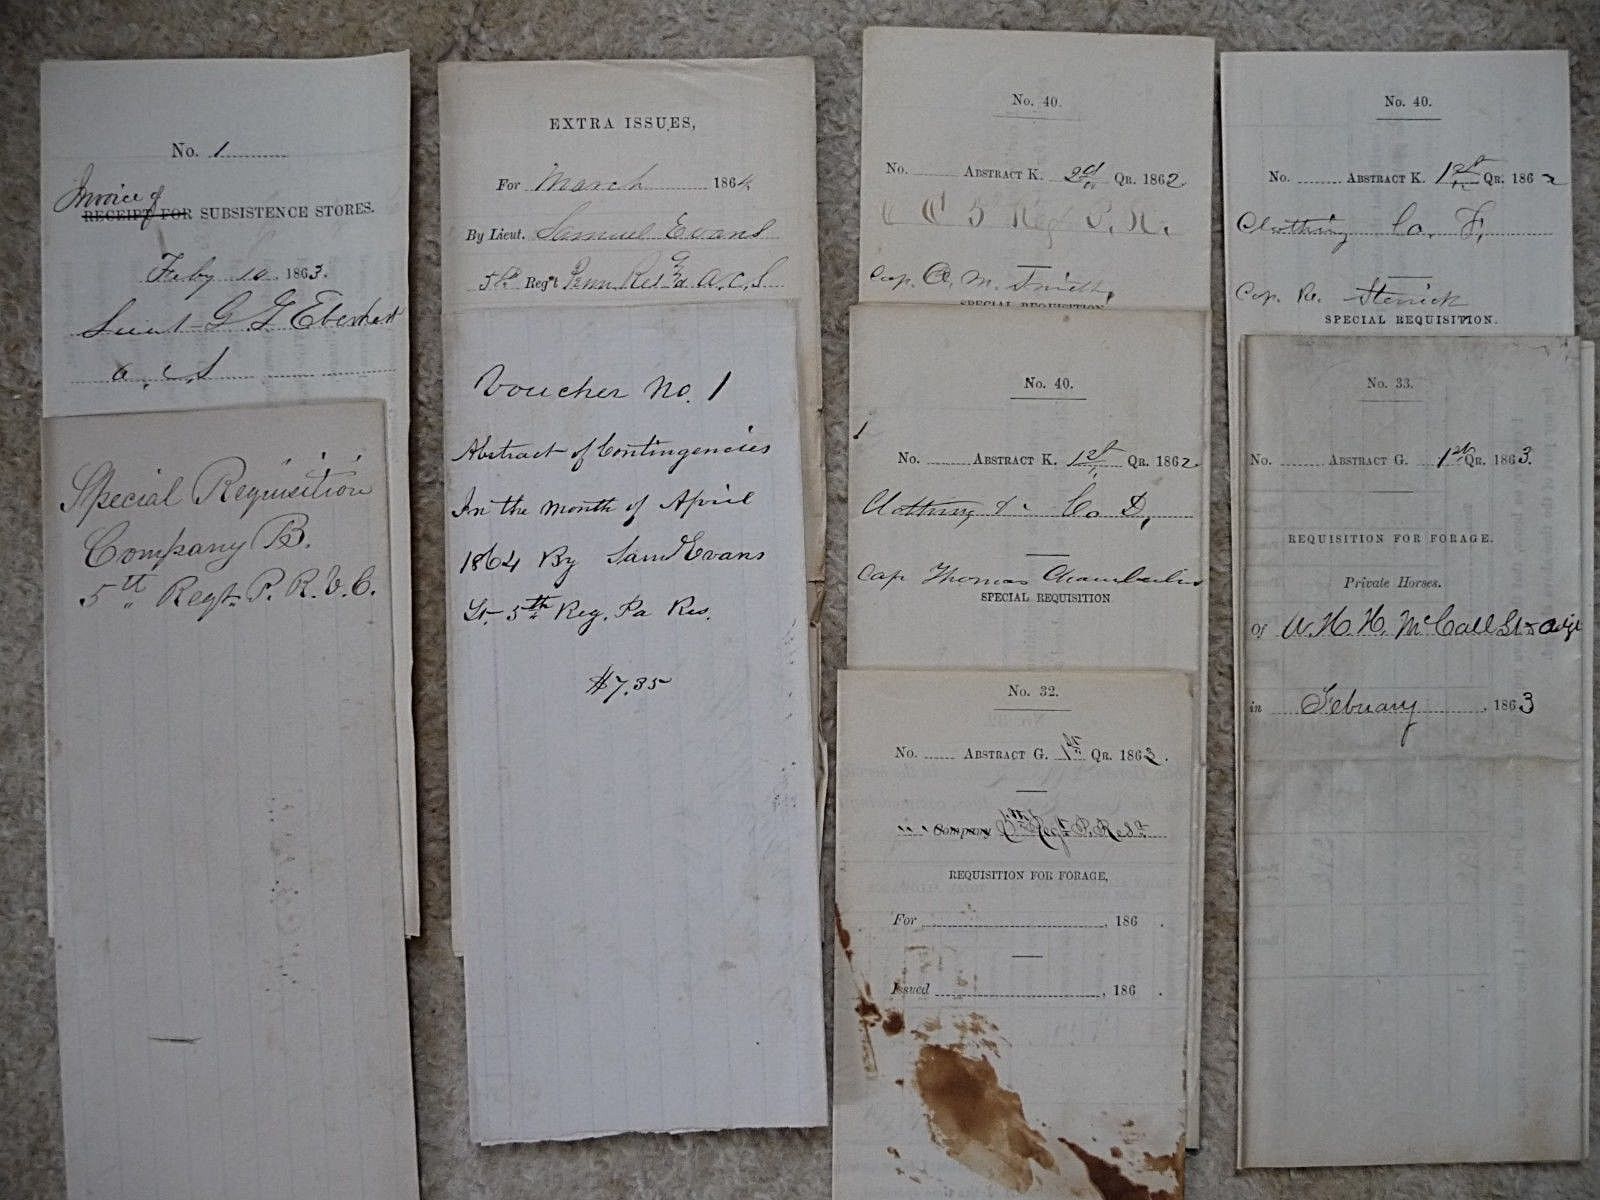 No. 1
Invoice of
RECEIPT FOR SUBSISTENCE STORES.
Feby 10 1863.
Lieut G G Eberhart
a.c.s
Special Requisition
Company B.
5th Regt. P. R. V. C.
EXTRA ISSUES,
For March 1864
By Lieut. Samuel Evans
5th Reg't Penn Res A.C.S
Voucher No. 1
Abstract of Contingencies
In the month of April
1864 By Saml Evans
Lt. 5th Reg. Pa Res.
$7.35
No. 40.
No. ABSTRACT K. 2d QR. 1862
5 Regt P. R.
Cap. A. M. Smith,
SPECIAL REQUISITION
1
No. 40.
No. ABSTRACT K. 1st QR. 1862
Clothing &c Co D,
Cap Thomas Chamberlin
SPECIAL REQUISITION
No. 32.
No. ABSTRACT G. 1st QR. 1863.
Company 5th Regt P. Rest
REQUISITION FOR FORAGE,
For , 186 .
Issued , 186 .
No. 40.
No. ABSTRACT K. 1st QR. 1862
Clothing Co. F,
Cap. R.
SPECIAL REQUISITION.
No. 33.
No. ABSTRACT G. 1st QR. 1863.
REQUISITION FOR FORAGE.
Private Horses.
Of W. H. H. McCall Lt & Adjt
in February , 1863